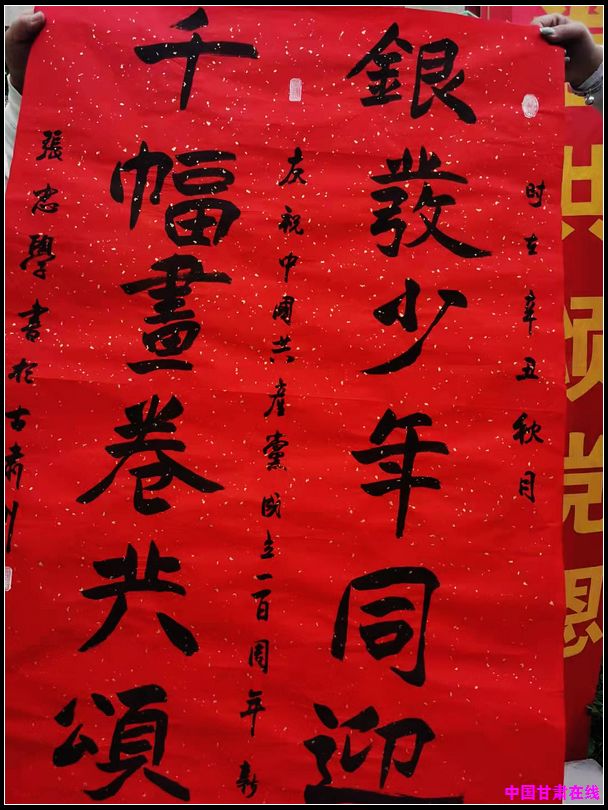 时在辛丑秋月
銀發少年同迎
庆祝中国共產黨成立一百周年新
千幅畫卷共頌
張忠學書於古肃州
共颂党恩
中国甘肃在线